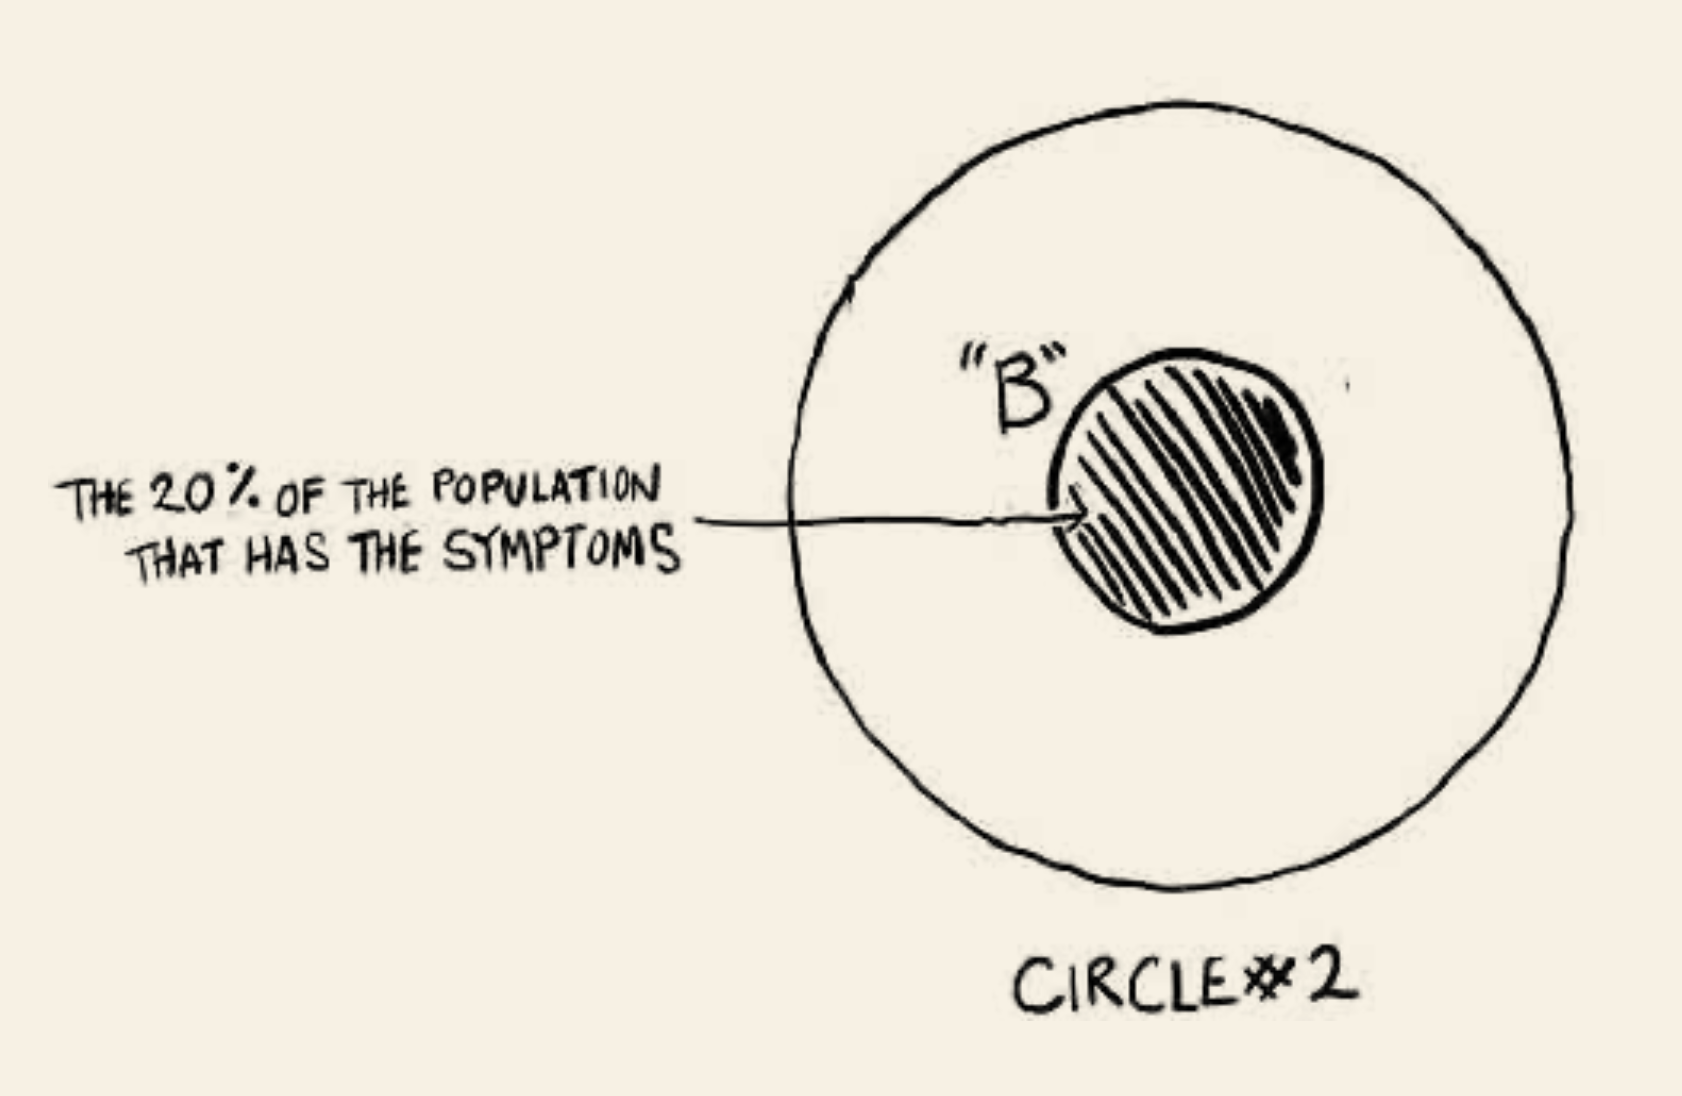 "B"
THE 20% OF THE POPULATION
THAT HAS THE SYMPTOMS
CIRCLE #2